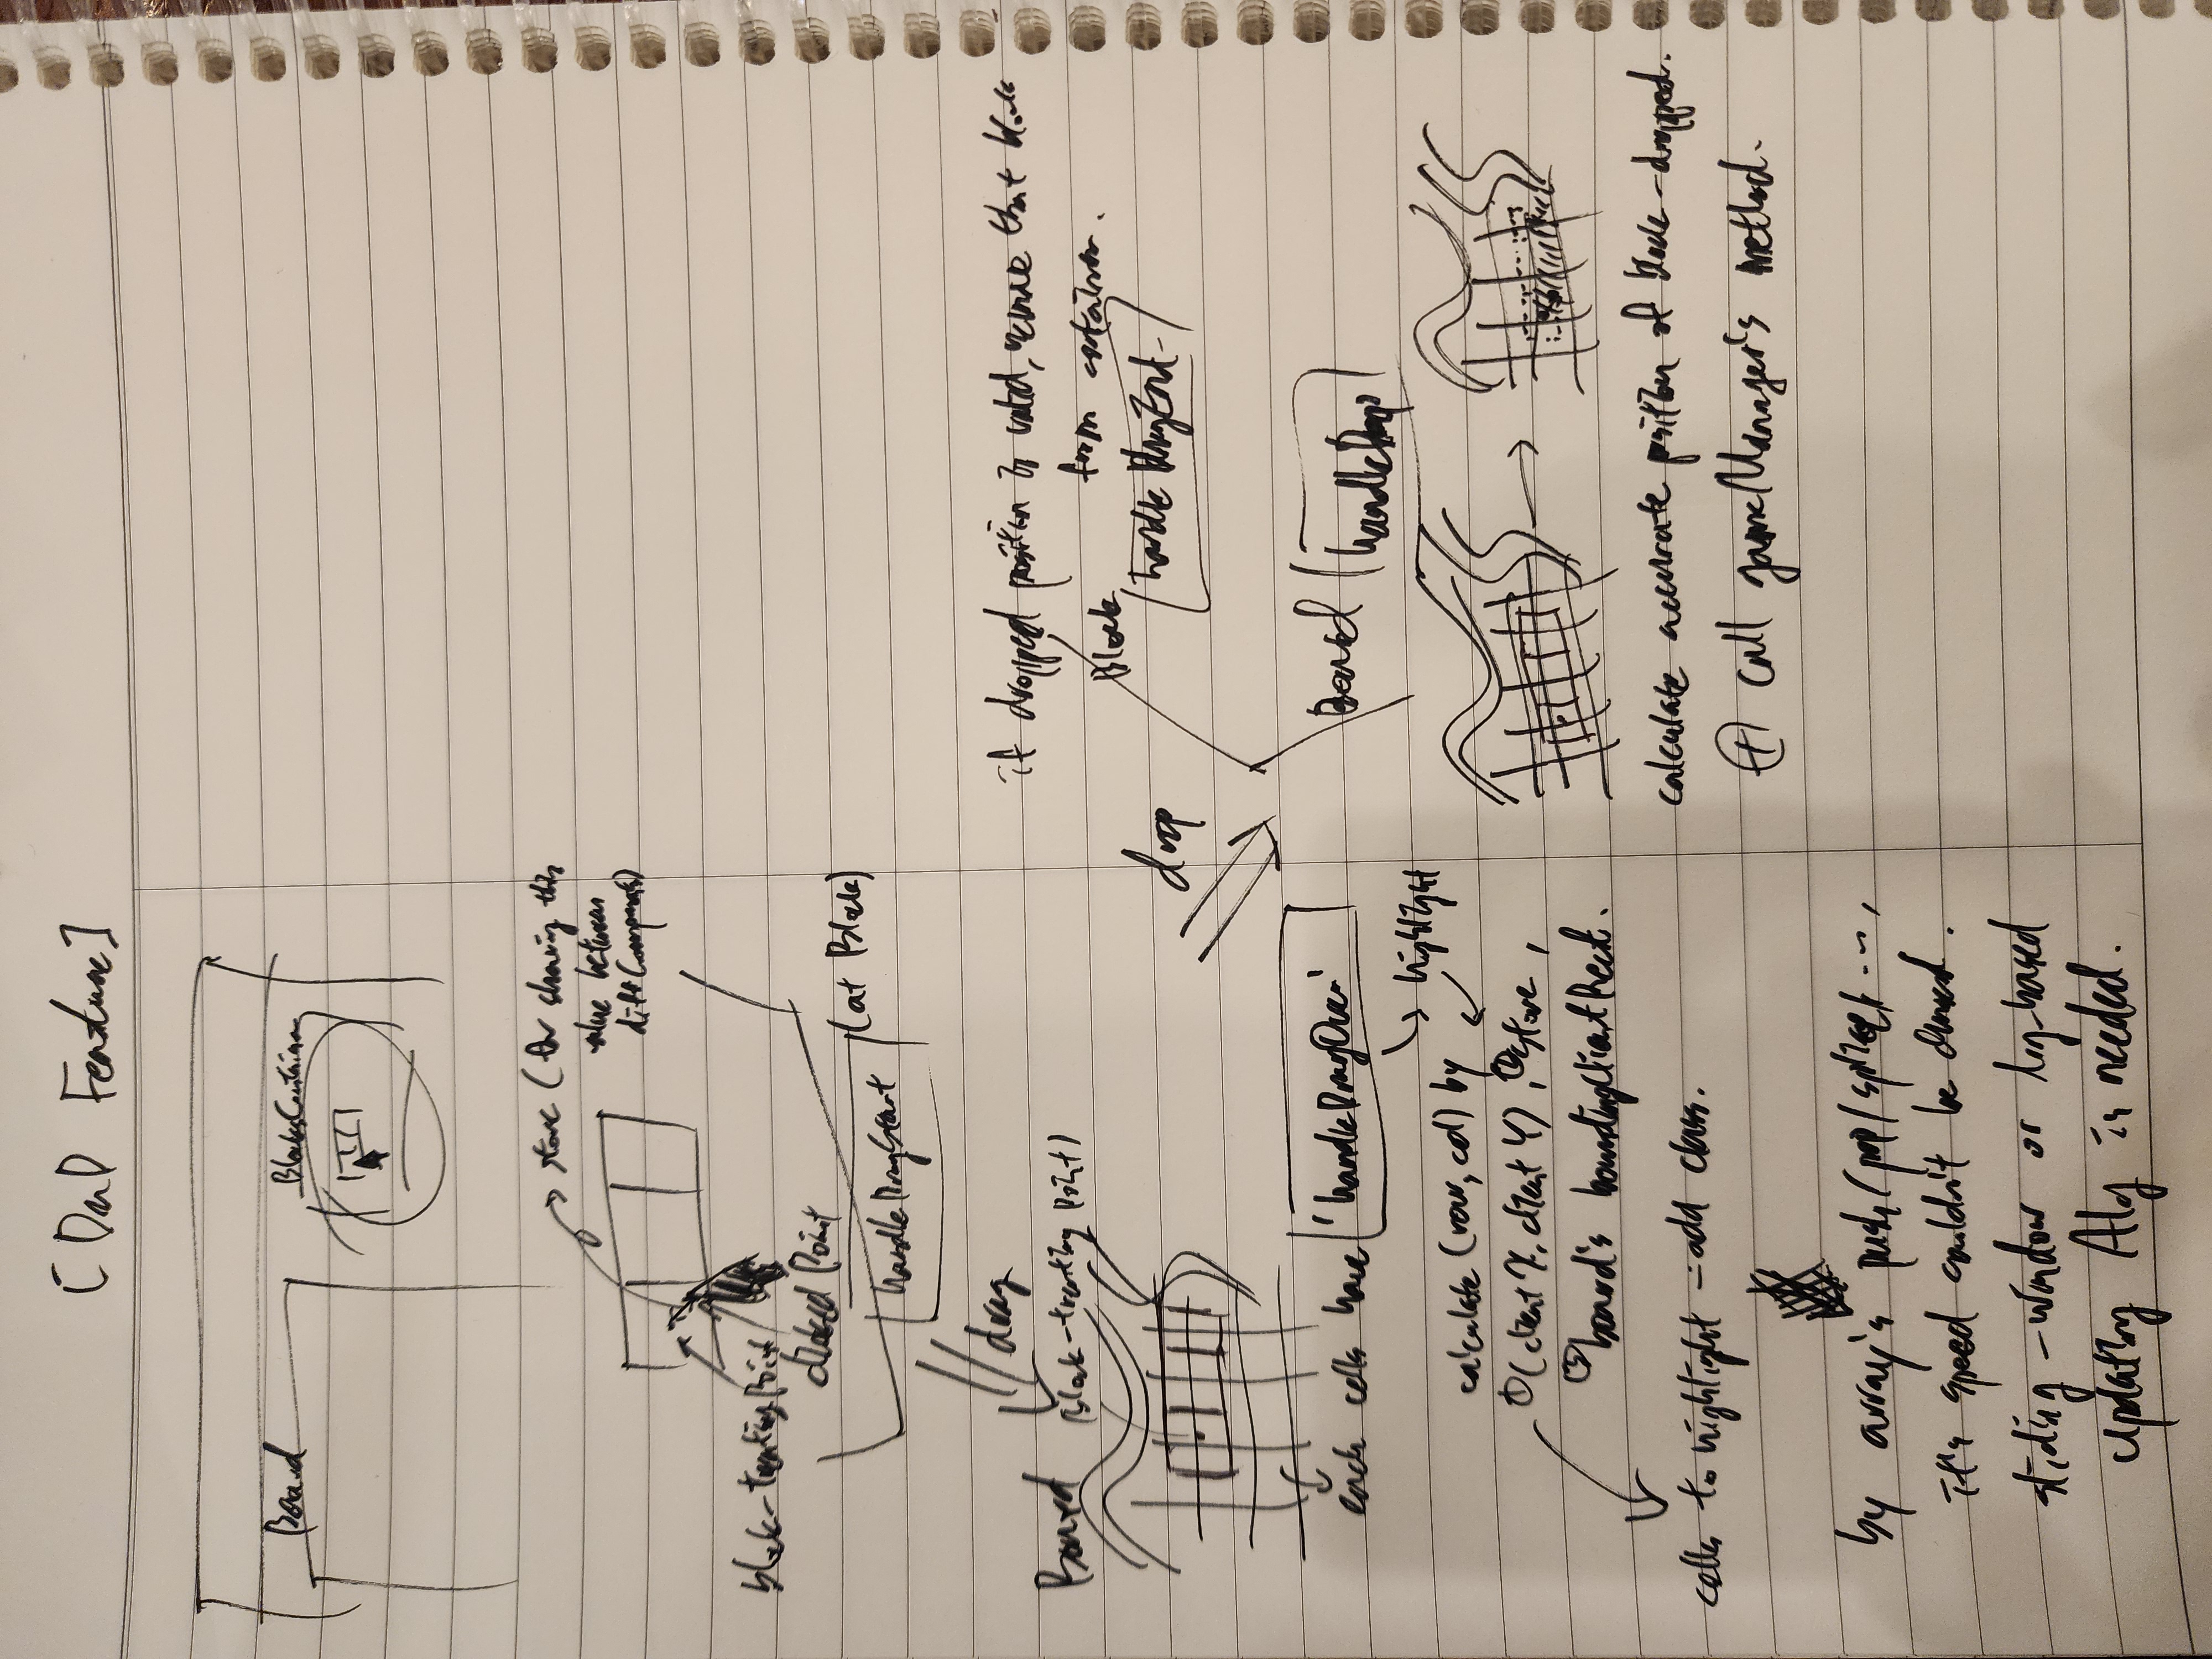 [DnD Feature]
Board
BlocksContainer
→ store (for sharing this
value between
diff Components)
block-starting Point
clicked Point
handleDragStart (at Block)
drag
Board
(Block-starting Point)
each cells have 'handleDragOver'
→ highlight
calculate (row, col) by
①(client X, client Y), ②
③ board's boundingClientRect.
cells to highlight - add class.
by array's push/pop/splice...,
it's speed couldn't be
sliding-window or log-based
updating Alg is needed.
drop
if dropped position is valid, remove that block
from container.
Block
handleDragEnd
Board
handleDrop
calculate accurate position of block-dropped.
⊕ call gameManager's method.